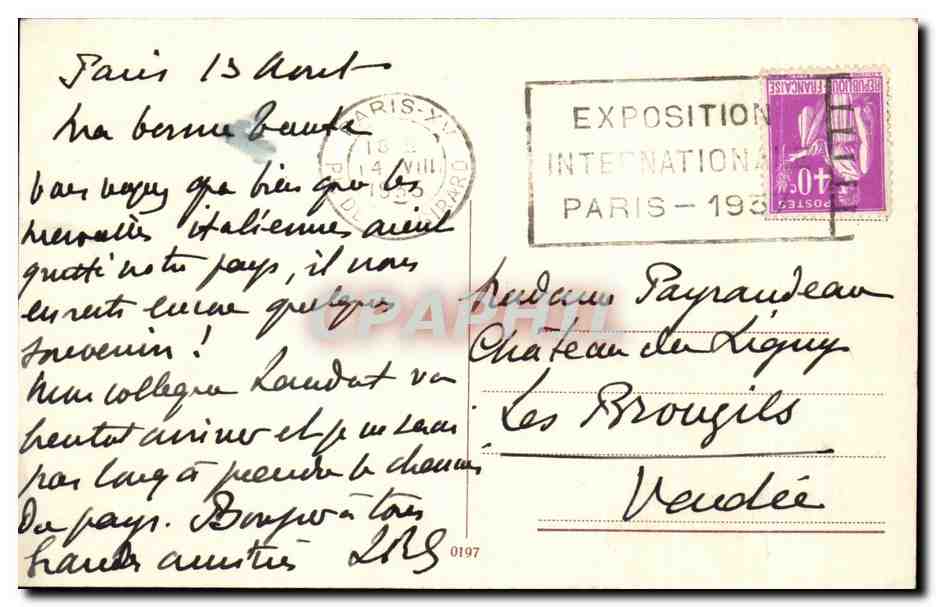 Paris 13 Aout
Ma bonne Tante
Vous voyez que bien que les
merveilles italiennes aient
quitté notre pays, il nous
en reste encore quelques
souvenirs !
Mon collègue Landat va
bientot arriver et je ne serai
pas long à prendre le chemin
du pays. Bonjour à tous
Grandes amitiés
PARIS-XV
18
14 VIII
1935
EXPOSITION
INTERNATIONA
PARIS - 193
REPUBLIQUE FRANCAISE
40c
POSTES
Madame Payraudeau
Château du Ligny
Les Brouzils
Vendée
CPAPHIL
0197